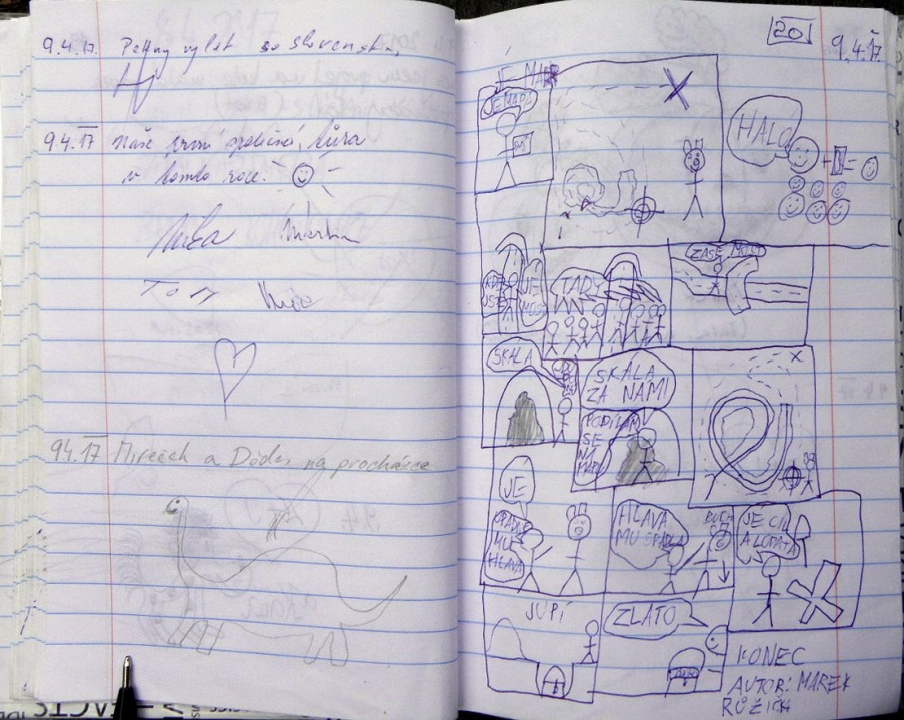 9.4.17. Pěkný výlet ze slovenska,
9.4.17 Naše první společná túra
v tomto roce.
Míša
Martin
Tom
9.4.17 Mireček a Dodes na procházce
20
9.4.17
JE MAPA
HALO
+ =
KDE
JSTE
JE
TADY
ZASE MOST
SKÁLA
SKÁLA
ZA NÁMI
PODÍVÁM
SE
NA
MAPU
JE
UPADLA
MU
HLAVA
HLAVA
MU UPADLA
BUCH
JE CÍL
A LOPATA
JUPÍ
ZLATO
KONEC
AUTOR: MAREK
RŮŽIČKA